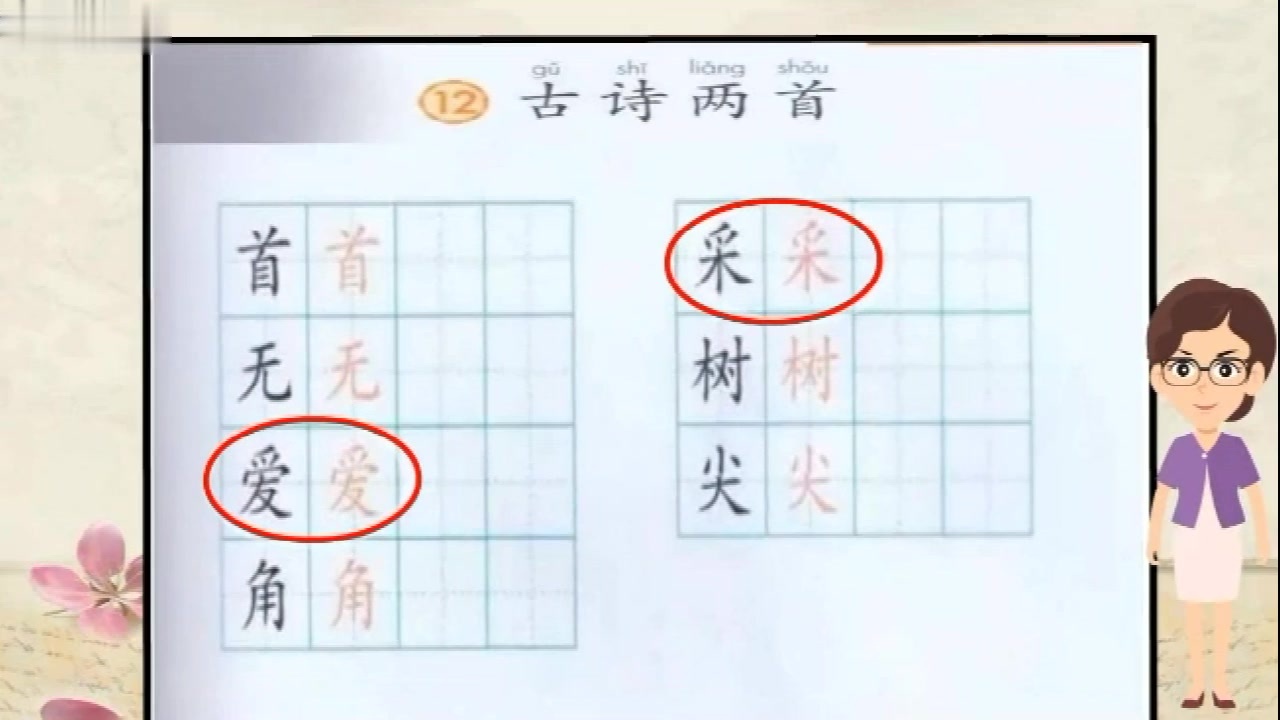 gǔ shī liǎng shǒu
12 古诗两首
首 首
无 无
爱 爱
角 角
采 采
树 树
尖 尖